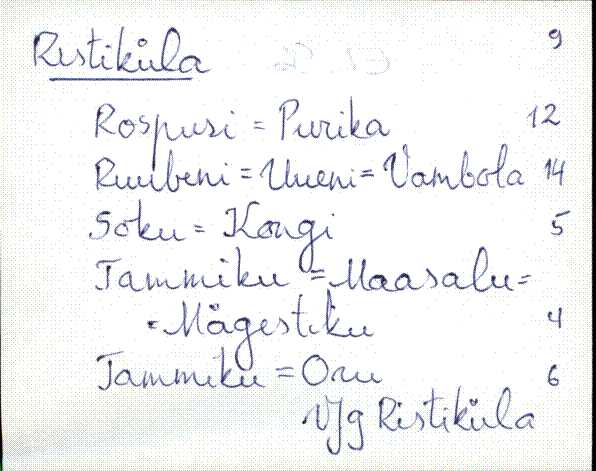 Ristiküla 9
Rospusi = Purika 12
Ruubeni = Uueni = Vambola 14
Soku = Kongi 5
Tammiku = Maasalu =
= Mägestiku 4
Tammiku = Oru 6
V/g Ristiküla